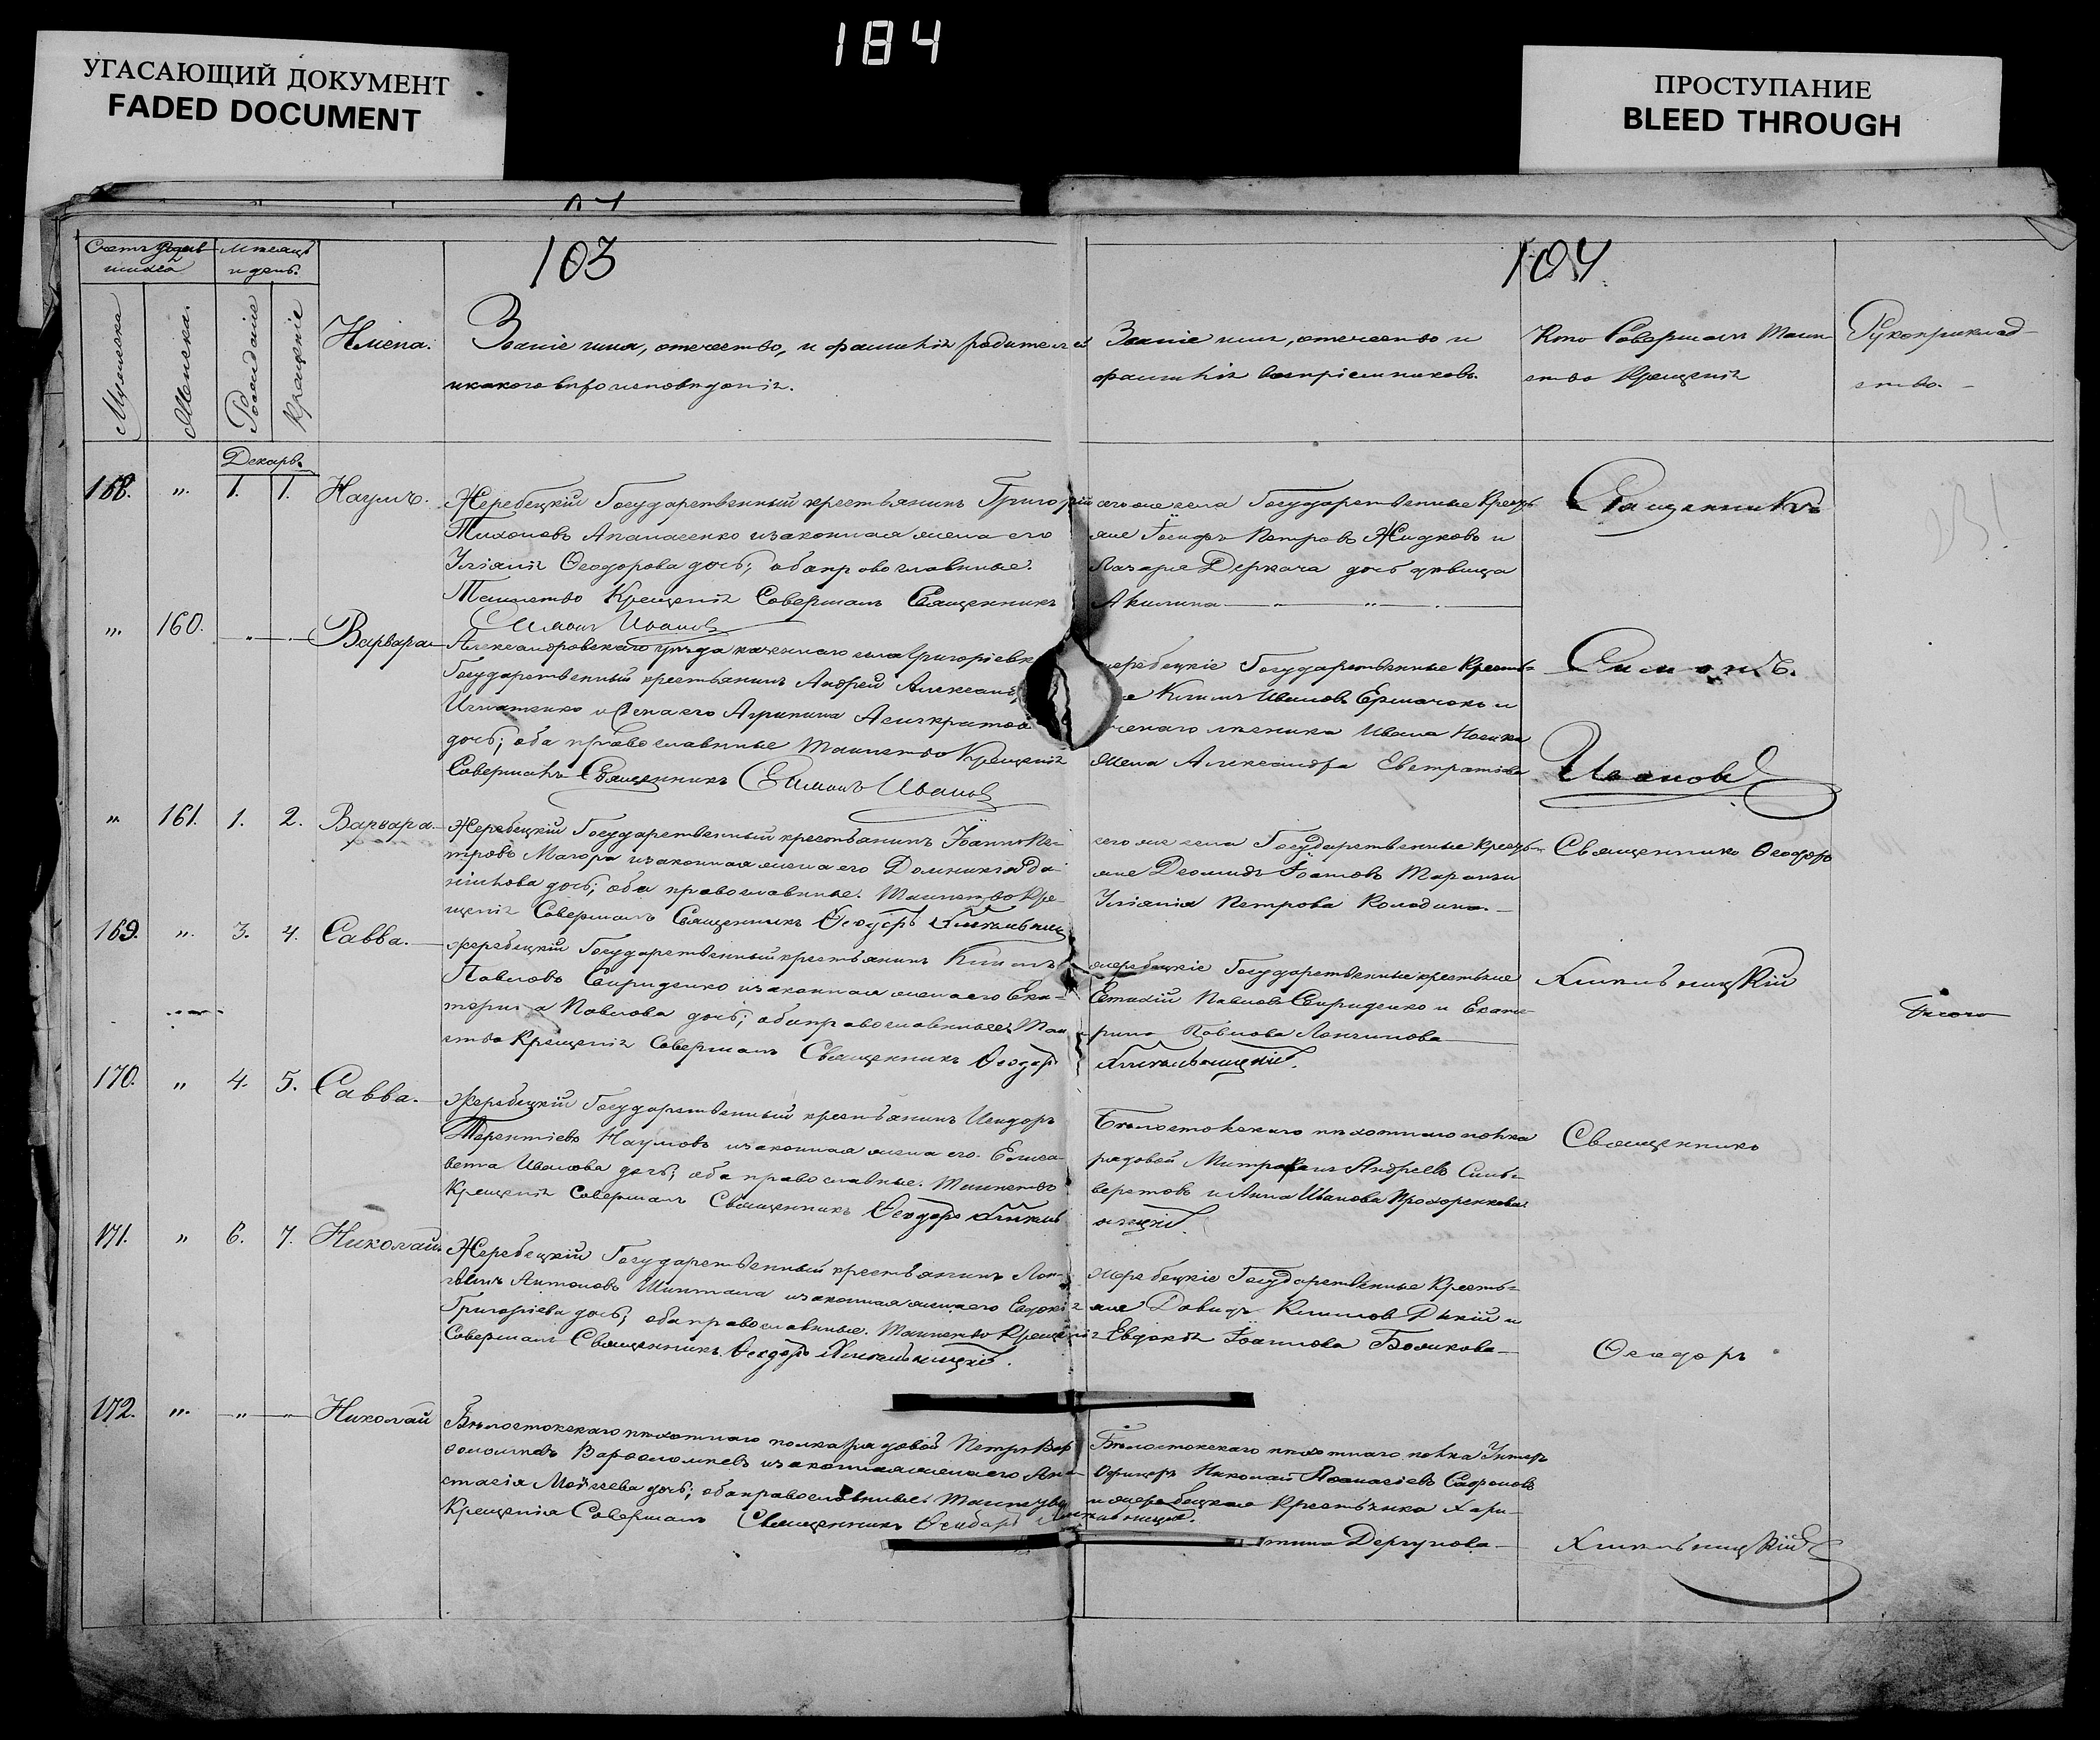 184
УГАСАЮЩИЙ ДОКУМЕНТ
FADED DOCUMENT
ПРОСТУПАНИЕ
BLEED THROUGH
103
104.
Счетъ Родив
шихся
Мѣсяцъ
и день.
Мужеска
Женска.
Рожденіе
Крещеніе
Имена.
Званіе имя, отечество, и фамилія родителей
и какого вѣроисповѣданія.
Званіе имя, отечество и
фамилія воспріемниковъ.
Кто Совершалъ Таин-
ство Крещенія
Рукоприклад-
ство.
Декарь.
168. " 1. 1. Наумъ.
Жеребецкій Государственный крестьянинъ Григорій
Тихоновъ Апанасенко и законная жена его
Уліанія Ѳеодорова дочь; оба православные.
Таинство Крещенія Совершалъ Священникъ
Симонъ Ивановъ
сего же села Государственные Кресть
яне Іосифъ Петровъ Жидковъ и
Лазаря Деркача дочь дѣвица
Акилина
Священникъ
" 160. " Варвара
Александровскаго уѣзда казеннаго села Григорьевки
Государственный крестьянинъ Андрей
Игнатенко и жена его Агрипина
дочь; оба православные Таинство Крещенія
Совершалъ Священникъ Симонъ Ивановъ
жеребецкіе Государственные Крестья
Климъ Ивановъ Ермачокъ и
Ивана Носика
жена Александра Евстратіева
Симонъ.
Ивановъ
" 161. 1. 2. Варвара.
Жеребецкій Государственный крестьянинъ Іоаннъ Пе-
тровъ Магора и законная жена его Домникія Да-
ніилова дочь; оба православные. Таинство Кре-
щенія Совершалъ Священникъ Ѳеодоръ
сего же села Государственные Кресть-
яне Деомидъ Іоановъ Таранъ и
Уліанія Петрова Колодина.
Священникъ Ѳеодоръ
169. " 3. 4. Савва.
Жеребецкій Государственный крестьянинъ Климъ
Павловъ Свириденко и законная жена его Ека-
терина Павлова дочь; оба православные Таин
ство Крещенія Совершалъ Священникъ Ѳеодоръ
жеребецкіе Государственные крестьяне
Евтихій Павловъ Свириденко и Екате-
рина Павлова Логвинова
Хмильницкій.
Хмильницкій
170. " 4. 5. Савва.
Жеребецкій Государственный крестьянинъ Исидоръ
Терентіевъ Наумовъ и законная жена его Елиса-
вета Иванова дочь; оба православные. Таинство
Крещенія Совершалъ Священникъ Ѳеодоръ Хмиль
Бѣлостокскаго пѣхотнаго полка
рядовой Митрофанъ Андреевъ Силь-
верстовъ и Анна Иванова Прохоренкова
ницкій.
Священникъ
171. " 6. 7. Николай.
Жеребецкій Государственный крестьянинъ Лон-
гвинъ Антоновъ Шинтала и законная жена его Евдокія
Григоріева дочь; оба православные. Таинство Крещенія
Совершалъ Священникъ Ѳеодоръ Хмильницкій.
жеребецкіе Государственные Кресть-
яне Давидъ Климовъ Дикій и
Евдокія Іоаннова Божкова
Ѳеодоръ
172. " " " Николай
Бѣлостокскаго пѣхотнаго полка рядовой Петръ Вар
ѳоломеевъ Варѳоломеевъ и законная жена его Ана-
стасія Моисеева дочь; оба православные Таинство
Крещенія Совершалъ Священникъ Ѳеодоръ Хмильницкій.
Бѣлостокскаго пѣхотнаго полка Унтеръ
Офицеръ Николай Аѳанасіевъ Сафоновъ
и жеребецкая Крестьянка Хари-
тина Дергунова
Хмильницкій